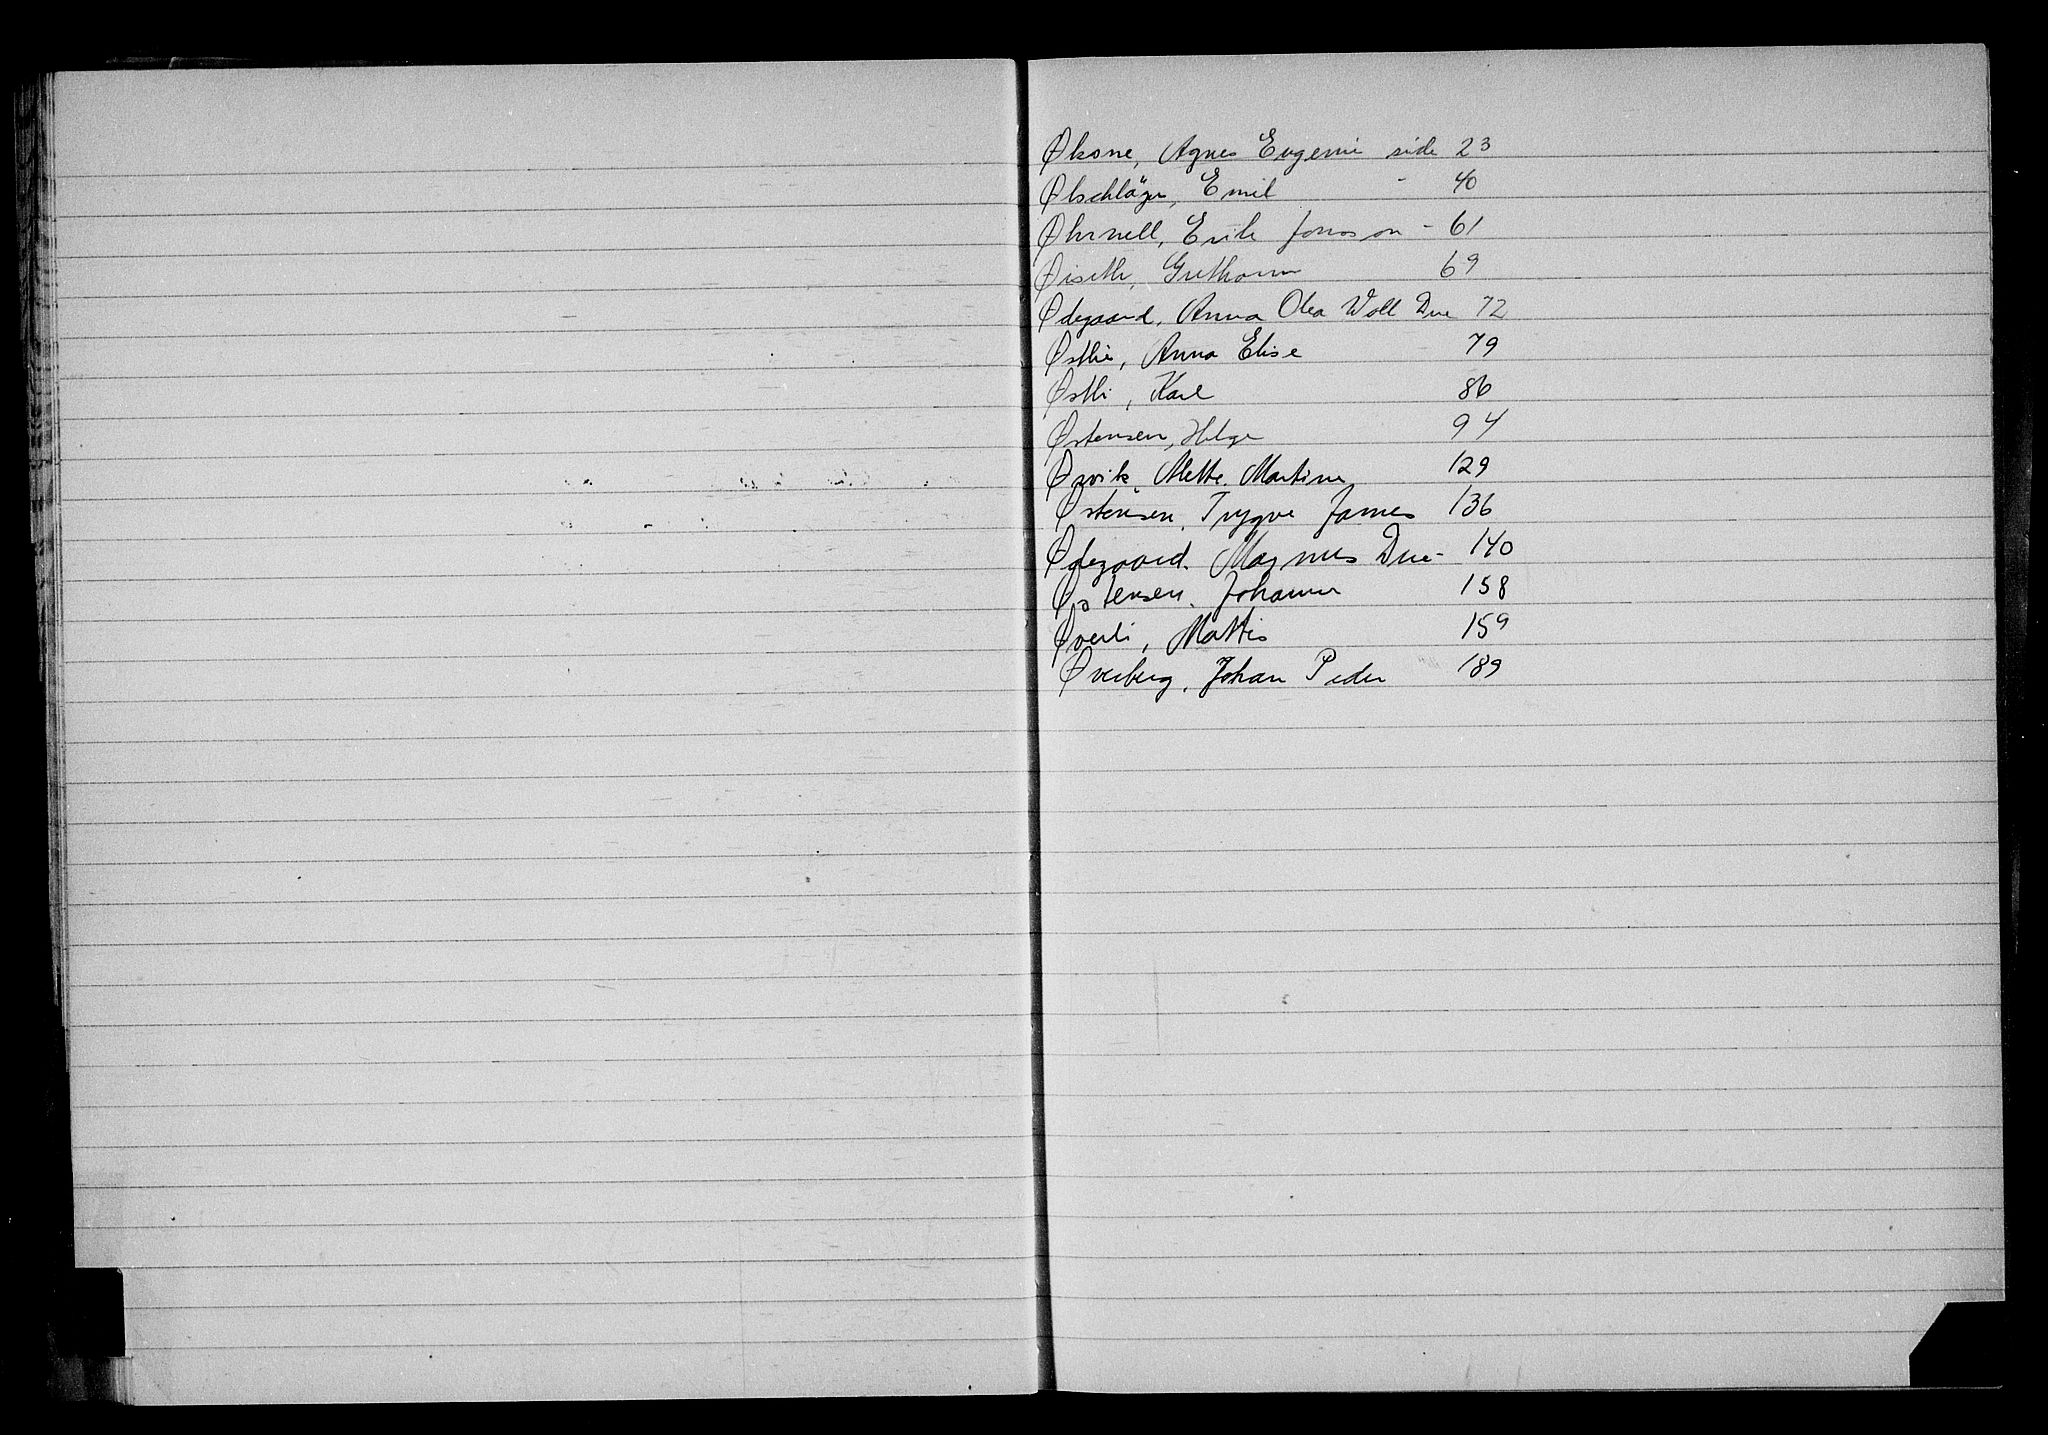 Økone, Agnes Eugenie side 23
Ølschläger, Emil - 40
Øhrnell, Erik Jonsson - 61
Øiseth, Guthorm 69
Ødegaard, Anna Olea Woll Due 72
Østlie, Anna Elise 79
Østli, Karl 86
Østensen, Helge 94
Ørvik, Mette Martine 129
Østensen, Trygve James 136
Ødegaard, Magnus Due - 140
Østensen, Johanne 158
Øverli, Mattis 159
Øverberg, Johan Peder 189